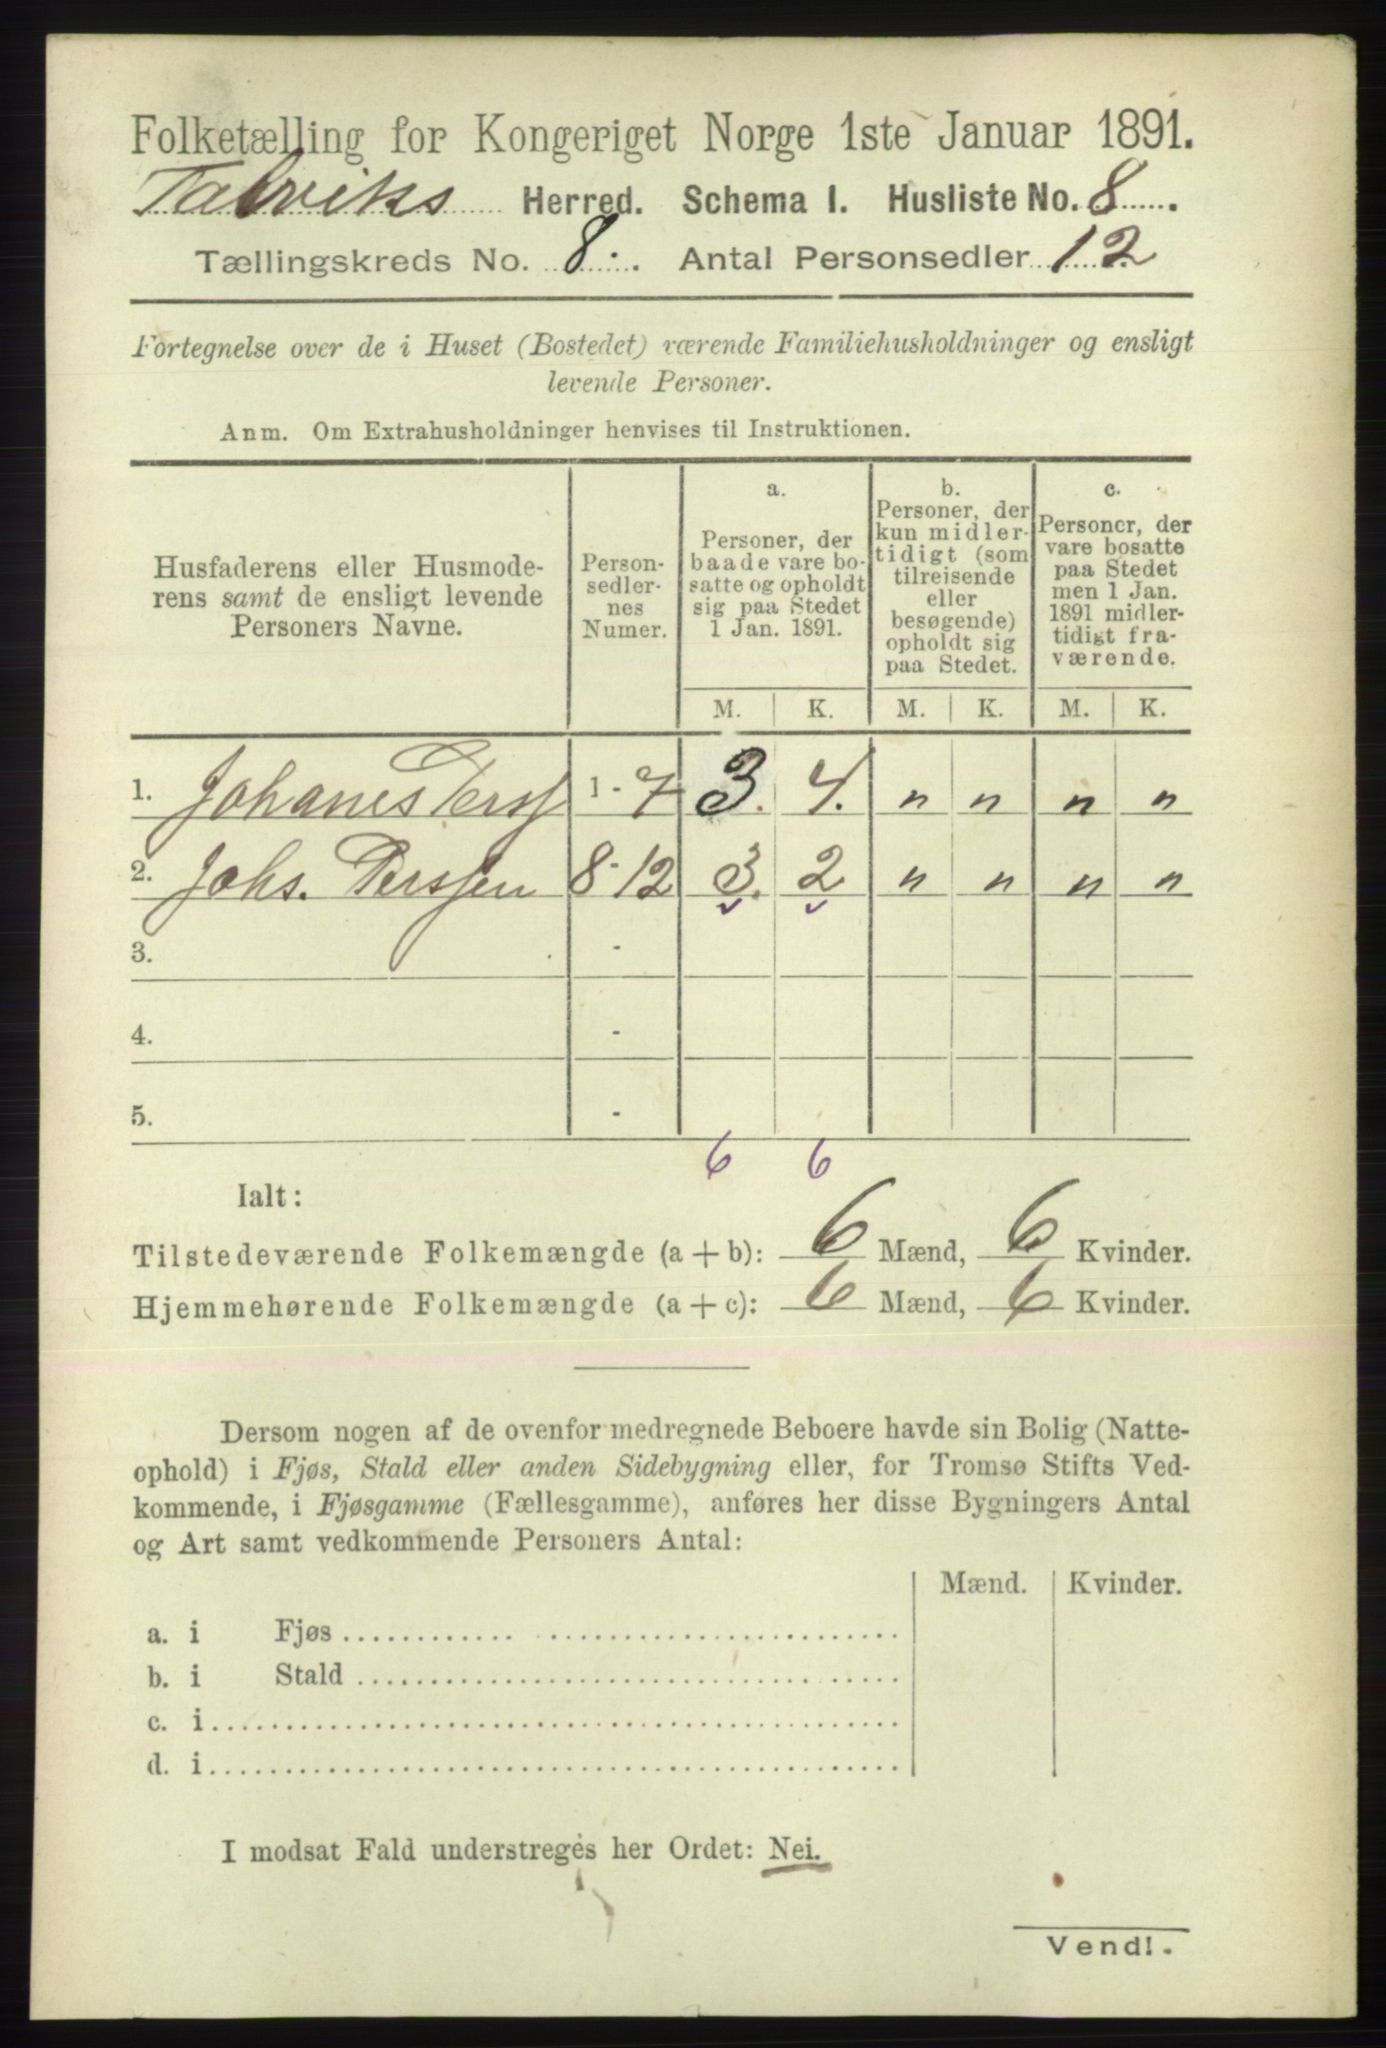 Folketælling for Kongeriget Norge 1ste Januar 1891.
Talviks Herred. Schema I. Husliste No. 8.
Tællingskreds No. 8. Antal Personsedler 12
Fortegnelse over de i Huset (Bostedet) værende Familiehusholdninger og ensligt
levende Personer.
Anm. Om Extrahusholdninger henvises til Instruktionen.
Husfaderens eller Husmode-
rens samt de ensligt levende
Personers Navne.
Person-
sedler-
nes
Numer.
a.
Personer, der
baade vare bo-
satte og opholdt
sig paa Stedet
1 Jan. 1891.
b.
Personer, der
kun midler-
tidigt (som
tilreisende
eller
besøgende)
opholdt sig
paa Stedet.
c.
Personer, der
vare bosatte
paa Stedet
men 1 Jan.
1891 midler-
tidigt fra-
værende.
M. K. M. K. M. K.
1. Johanes Pers 1 - 7 3. 4. " " " "
2. Johs. Perssen 8 - 12 3. 2 " " " "
3. -
4. -
5. -
6 6
Ialt:
Tilstedeværende Folkemængde (a + b): 6 Mænd, 6 Kvinder.
Hjemmehørende Folkemængde (a + c): 6 Mænd, 6 Kvinder.
Dersom nogen af de ovenfor medregnede Beboere havde sin Bolig (Natte-
ophold) i Fjøs, Stald eller anden Sidebygning eller, for Tromsø Stifts Ved-
kommende, i Fjøsgamme (Fællesgamme), anføres her disse Bygningers Antal
og Art samt vedkommende Personers Antal:
Mænd. Kvinder.
a. i Fjøs
b. i Stald
c. i
d. i
I modsat Fald understreges her Ordet: Nei.
Vend!.